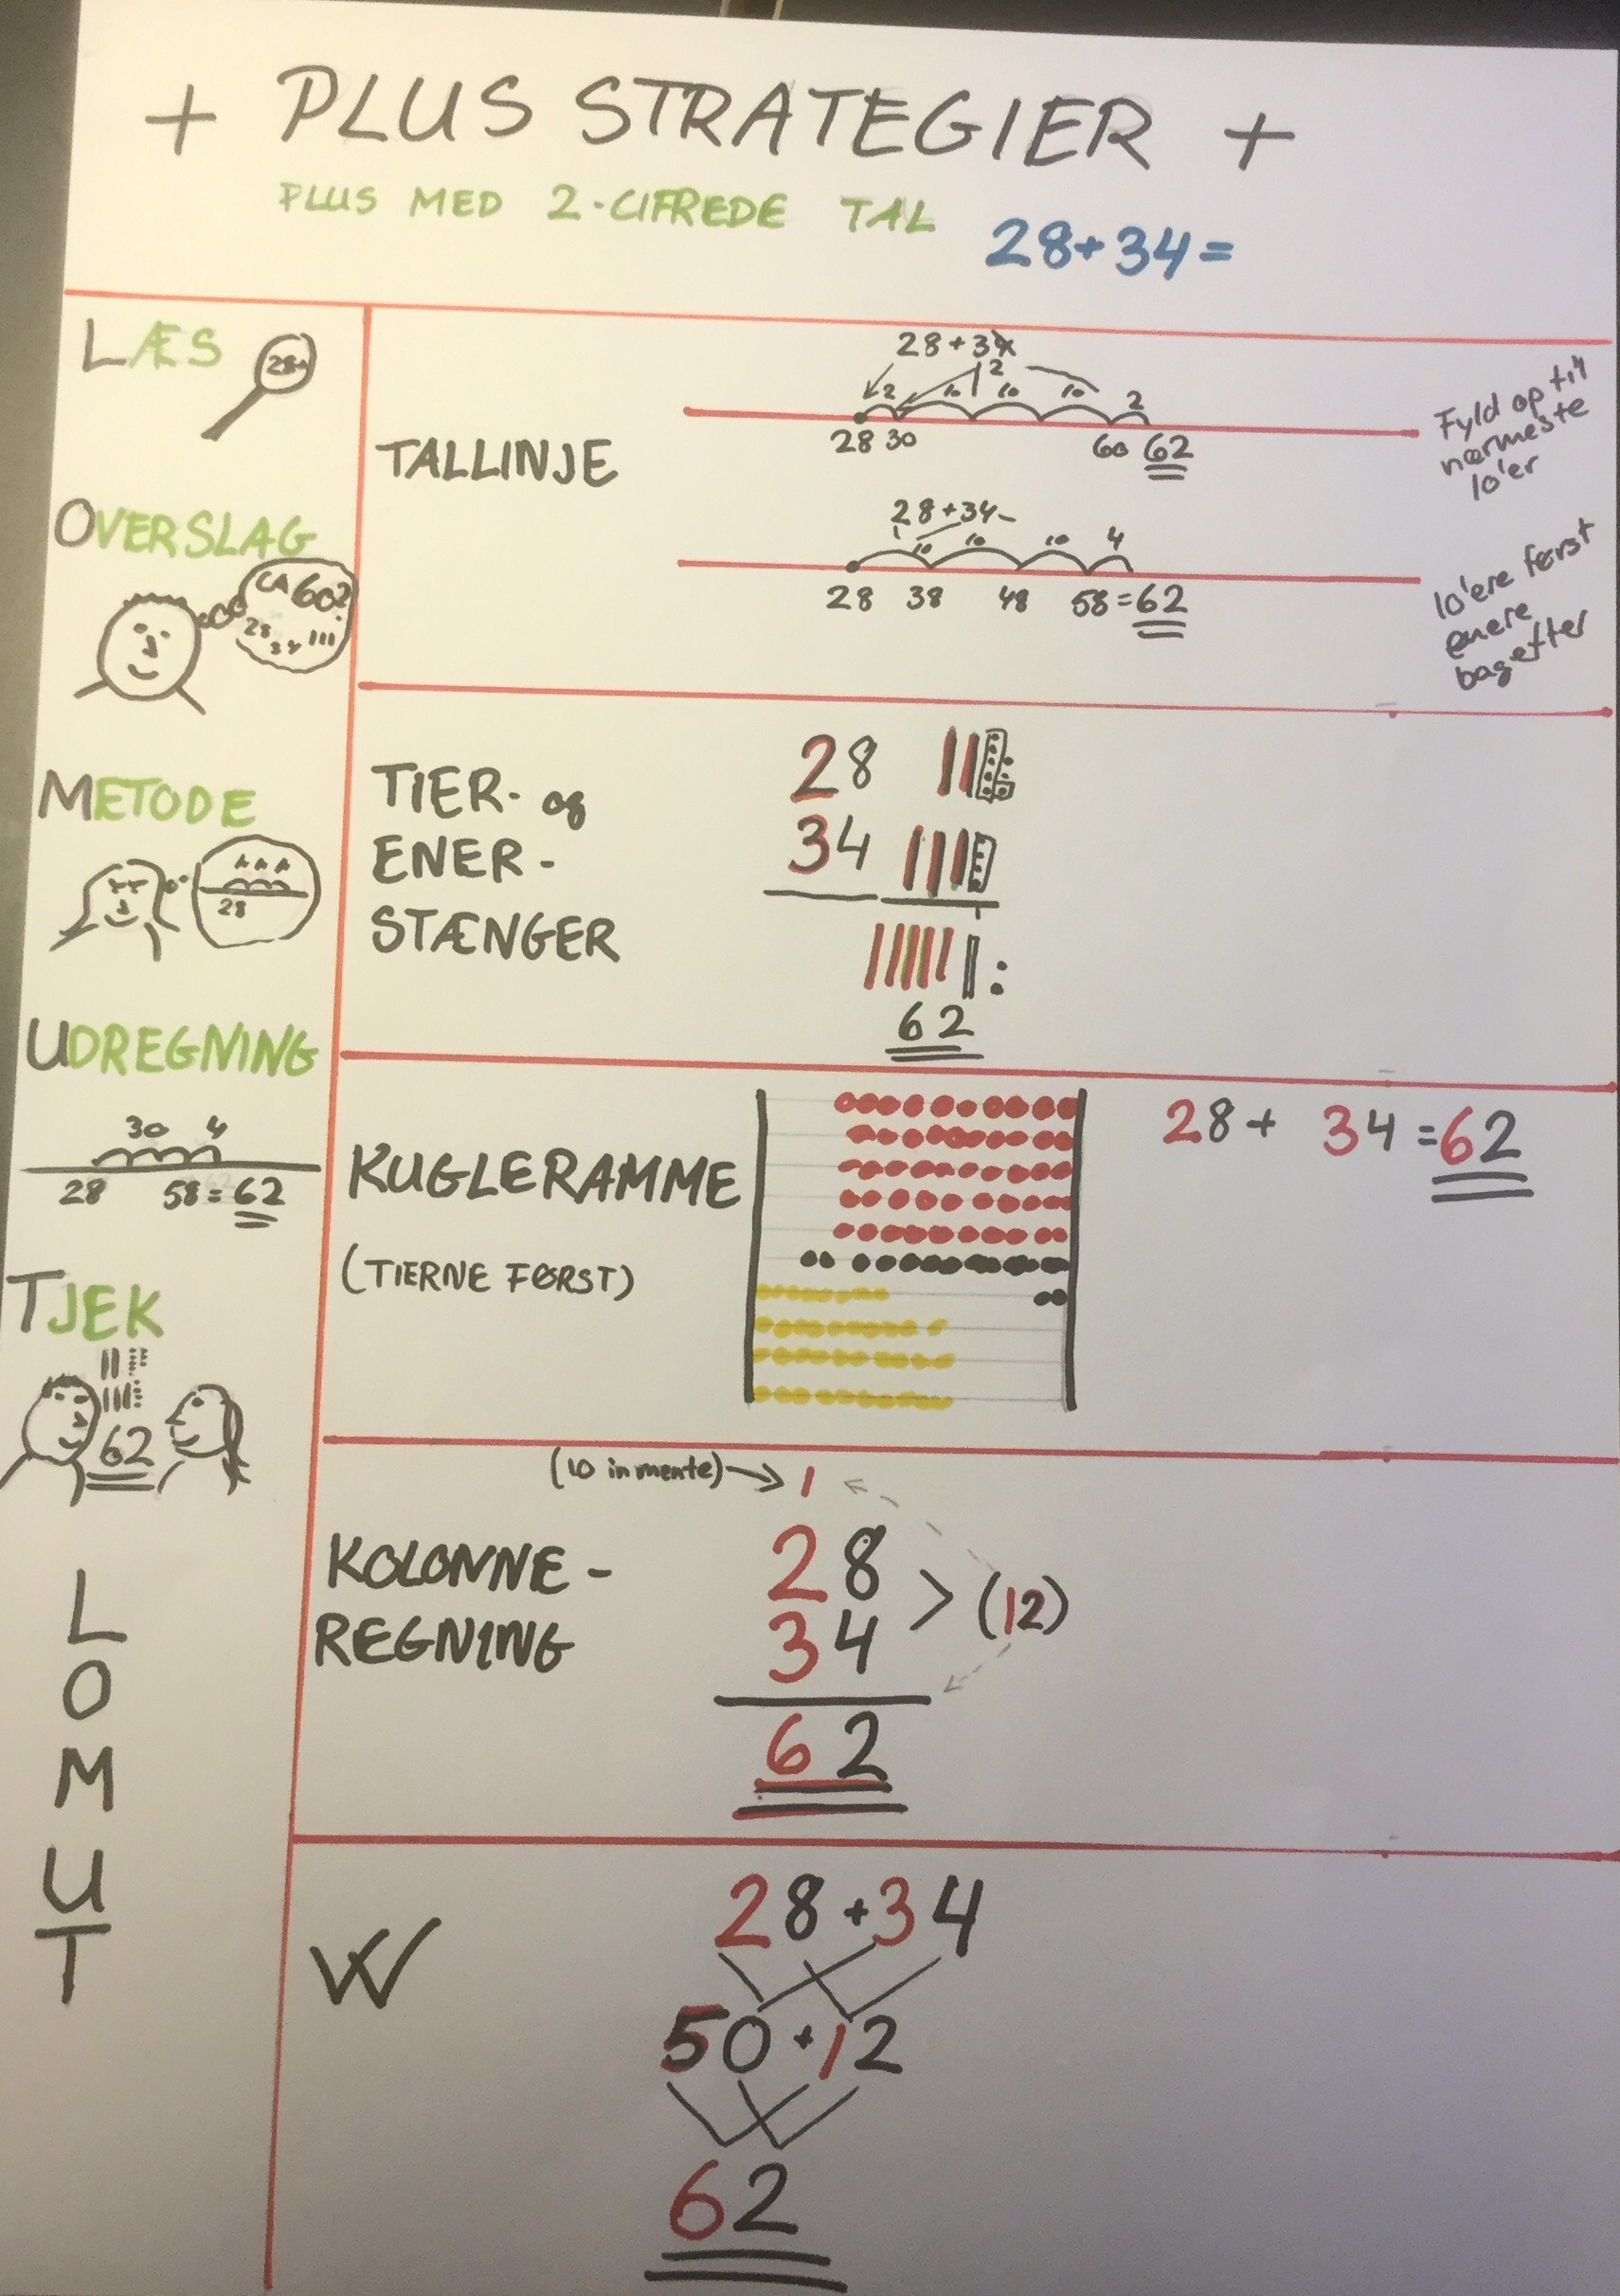 + PLUS STRATEGIER +
PLUS MED 2-CIFREDE TAL
28+34=
LÆS
28+
OVERSLAG
CA 60?
28
34
METODE
28
UDREGNING
30 4
28 58=62
TJEK
62
L
O
M
U
T
TALLINJE
28+34
2
2 10 10 10 2
28 30 60 62
Fyld op til
nærmeste
10'er
28+34
10 10 10 4
28 38 48 58=62
10'ere først
enere
bagefter
TIER- og
ENER-
STÆNGER
28
34
62
KUGLERAMME
(TIERNE FØRST)
28+ 34=62
KOLONNE-
REGNING
(10 in mente) → 1
28
34
> (12)
62
W
28+34
50+12
62